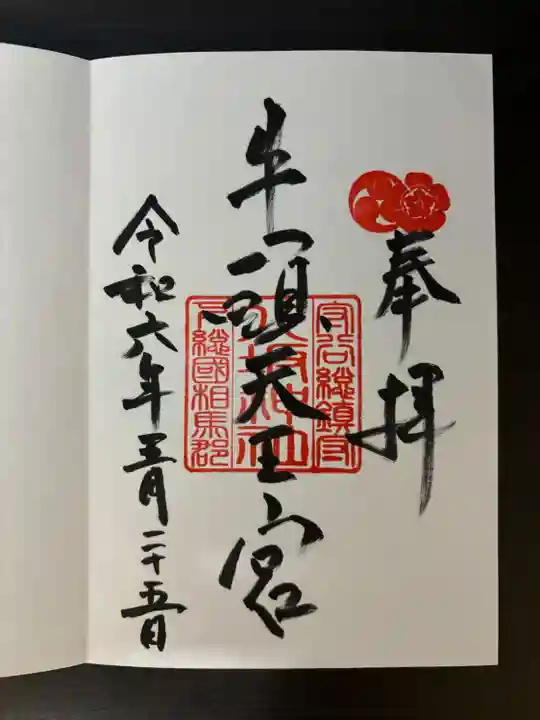 奉拝
守谷総鎮守
八坂神社
下総國相馬郡
牛頭天王宮
令和六年五月二十五日